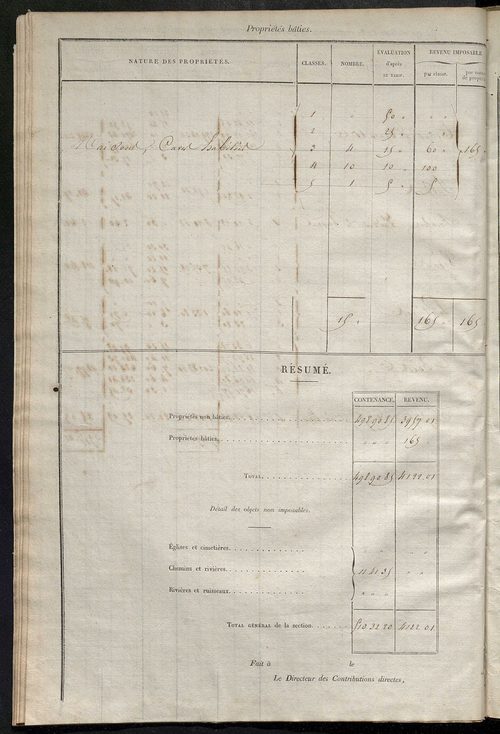 Propriétés bâties.
NATURE DES PROPRIÉTÉS. CLASSES. NOMBRE. ÉVALUATION d'après LE TARIF. REVENU IMPOSABLE
par classe. par nature de propriété
1 " 50 " " "
2 " 25 " " "
Maisons 3 4 15 " 60 " 165 "
4 10 10 " 100
5 1 5 " 5
15 165 165
RÉSUMÉ.
CONTENANCE. REVENU.
Propriétés non bâties. 498 90 85 3957 01
Propriétés bâties. " " " 165
TOTAL. 498 90 85 4122 01
Détail des objets non imposables.
Églises et cimetières. " " "
Chemins et rivières. 11 41 35 " "
Rivières et ruisseaux. " " "
TOTAL GÉNÉRAL de la section. 510 32 20 4122 01
Fait à le
Le Directeur des Contributions directes,